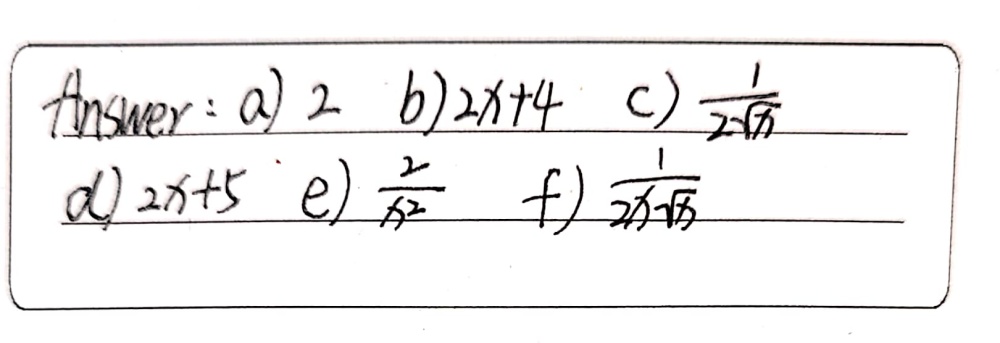 Answer: a) 2 b) 2x+4 c) 1/(2√x)
d) 2x+5 e) 2/x² f) 1/(2x√x)